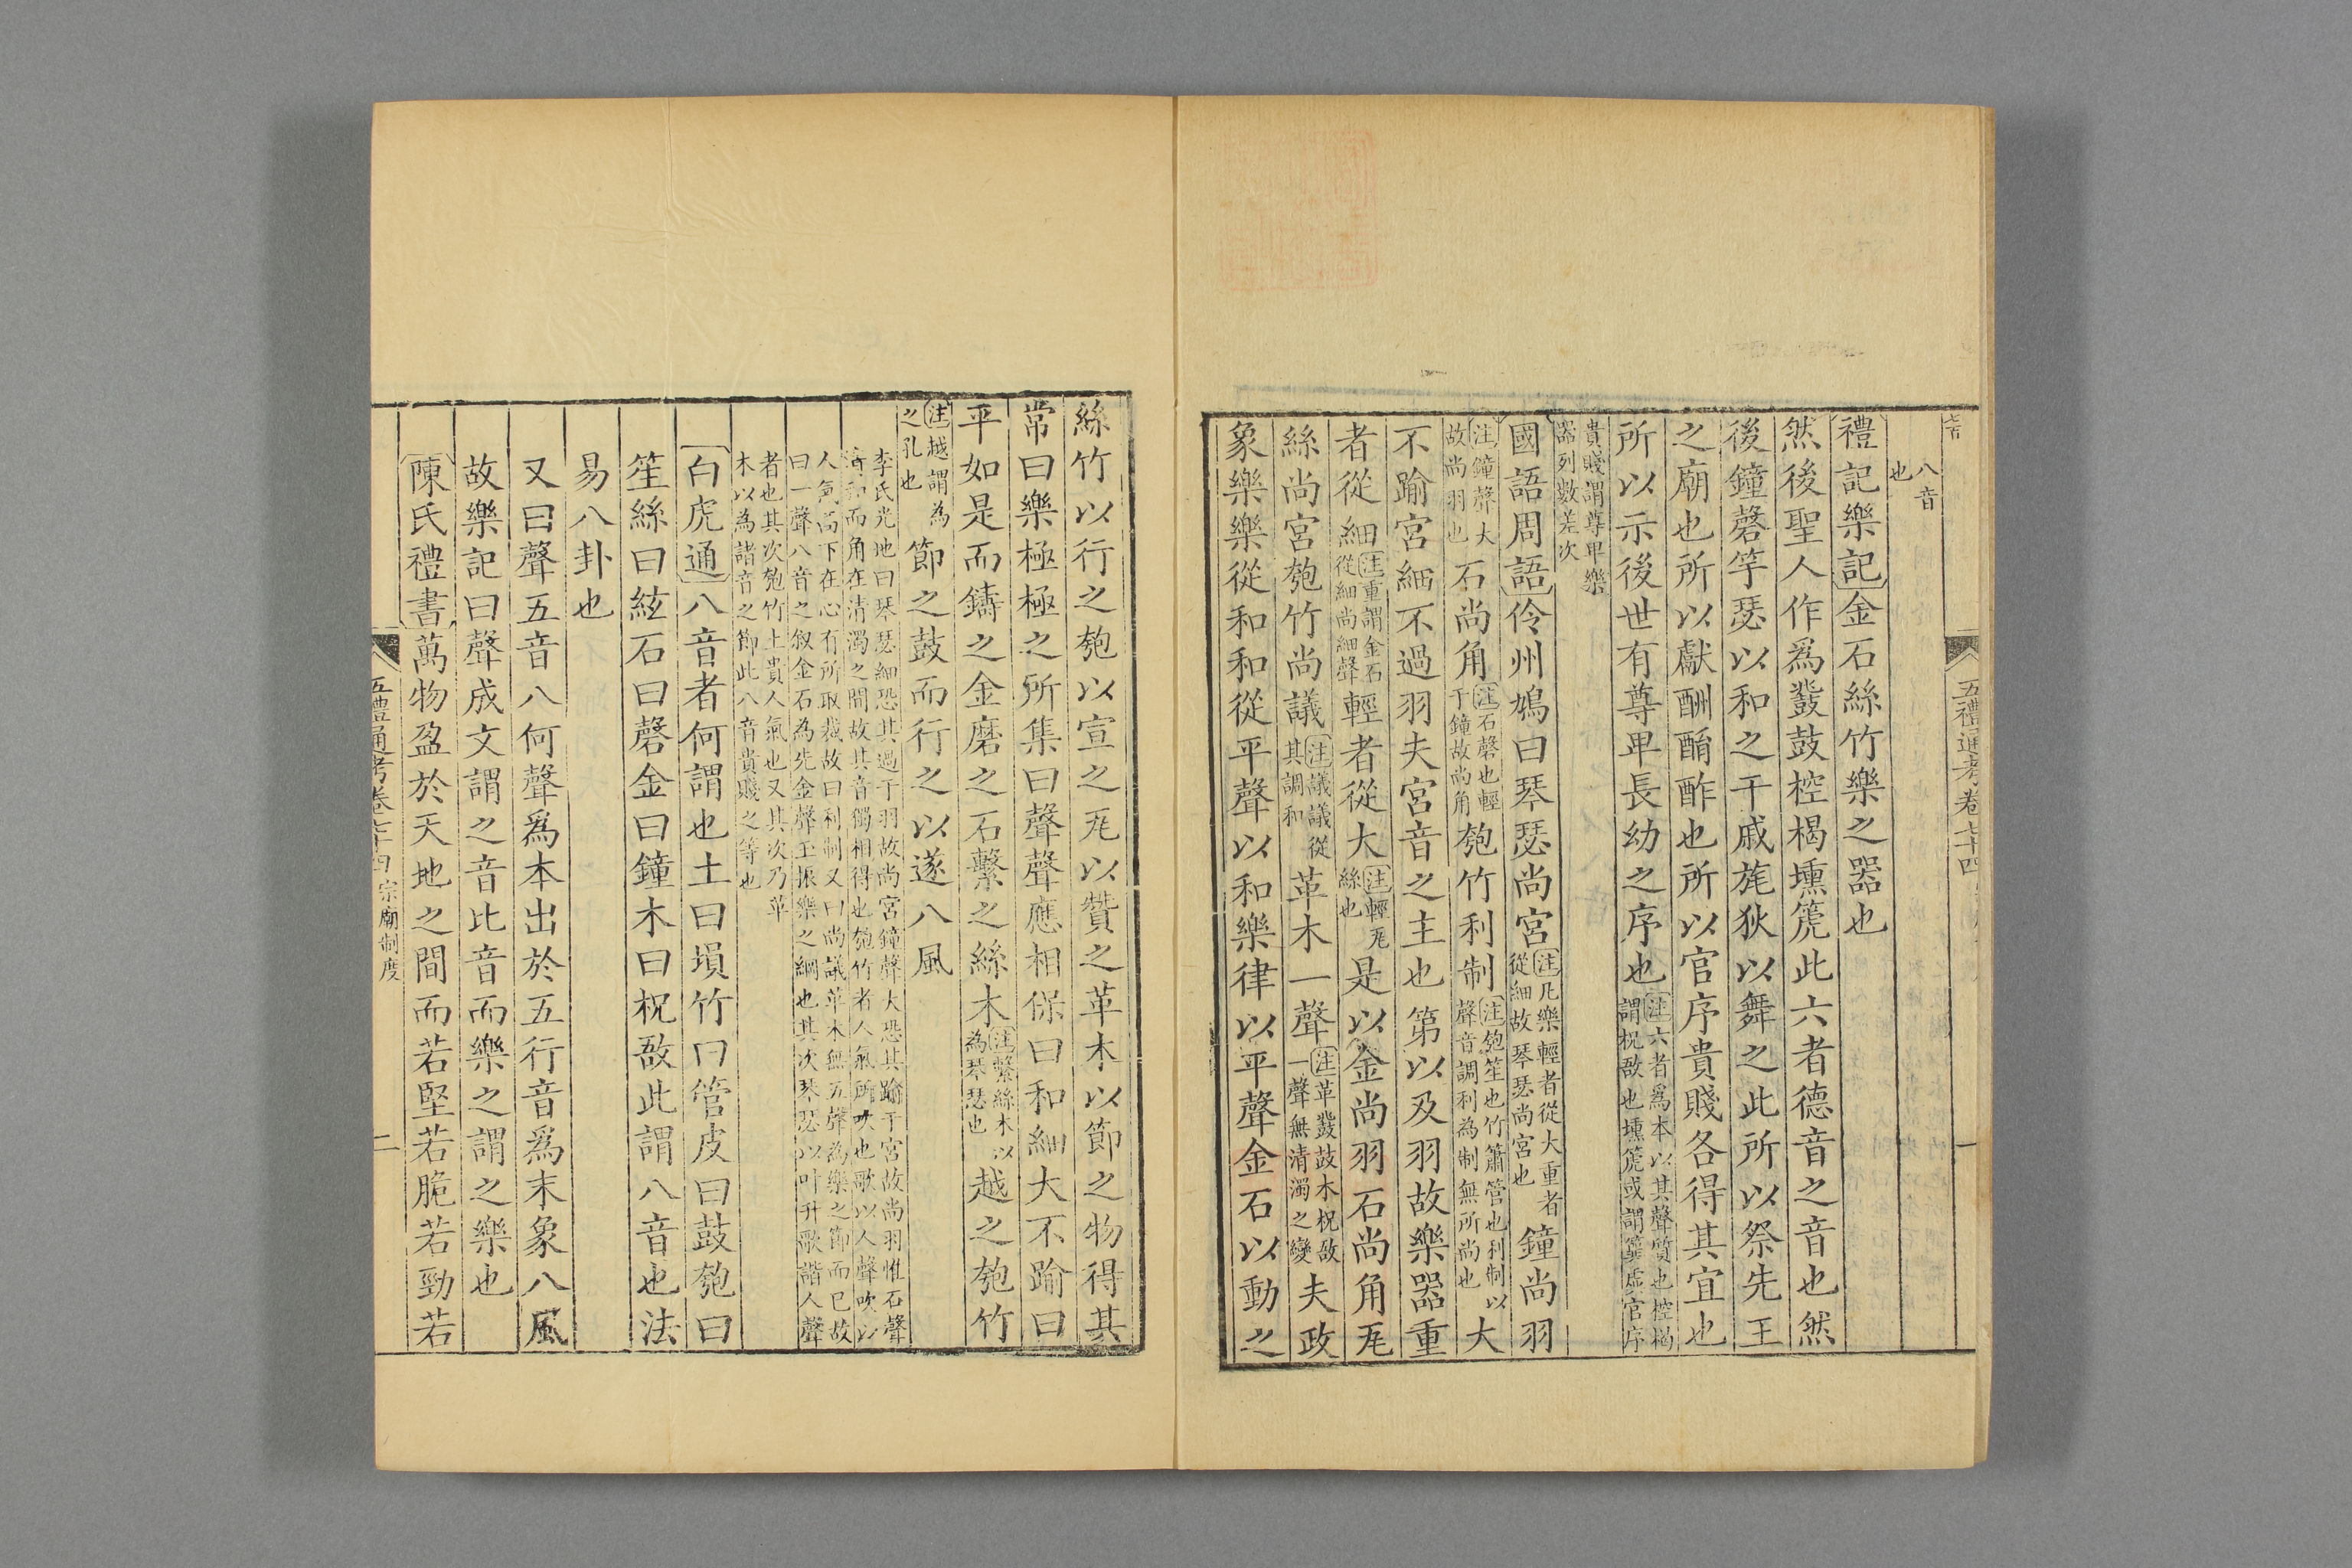 五禮通考卷七十四
一
八音
也
禮記樂記金石絲竹樂之器也
然後聖人作為鼗鼓椌楬壎箎此六者德音之音也然
後鐘磬竽瑟以和之干戚旄狄以舞之此所以祭先王
之廟也所以獻酬酳酢也所以官序貴賤各得其宜也
所以示後世有尊卑長幼之序也注六者為本以其聲質也椌楬謂柷敔也壎箎或謂簨虡官序
貴賤謂尊卑樂器列數差次
國語周語伶州鳩曰琴瑟尚宮注凡樂輕者從大重者從細故琴瑟尚宮也鐘尚羽
注鐘聲大故尚羽也石尚角注石磬也輕于鐘故尚角匏竹利制注匏笙也竹簫管也利制以聲音調利為制無所尚也大
不踰宮細不過羽夫宮音之主也第以及羽故樂器重
者從細注重謂金石從細尚細聲輕者從大注輕瓦絲也是以金尚羽石尚角瓦
絲尚宮匏竹尚議注議議從其調和革木一聲注革鼗鼓木柷敔一聲無清濁之變夫政
象樂樂從和和從平聲以和樂律以平聲金石以動之
絲竹以行之匏以宣之瓦以贊之革木以節之物得其
常曰樂極極之所集曰聲聲應相保曰和細大不踰曰
平如是而鑄之金磨之石繫之絲木注繫絲木以為琴瑟也越之匏竹
注越謂為之孔也節之鼓而行之以遂八風
李氏光地曰琴瑟細恐其過于羽故尚宮鐘聲大恐其踰于宮故尚羽惟石聲
清和而角在清濁之間故其音獨相得也匏竹者人氣所吹也歌以人聲吹以
人氣高下在心有所取裁故曰利制又曰尚議革木無五聲為樂之節而已故
曰一聲八音之叙金石為先金聲玉振樂之綱也其次琴瑟以叶升歌諧人聲
者也其次匏竹土貴人氣也又其次乃革
木以為諸音之節此八音貴賤之等也
白虎通八音者何謂也土曰塤竹曰管皮曰鼓匏曰
笙絲曰絃石曰磬金曰鐘木曰柷敔此謂八音也法
易八卦也
又曰聲五音八何聲為本出於五行音為末象八風
故樂記曰聲成文謂之音比音而樂之謂之樂也
陳氏禮書萬物盈於天地之間而若堅若脆若勁若
五禮通考卷七十四宗廟制度
二